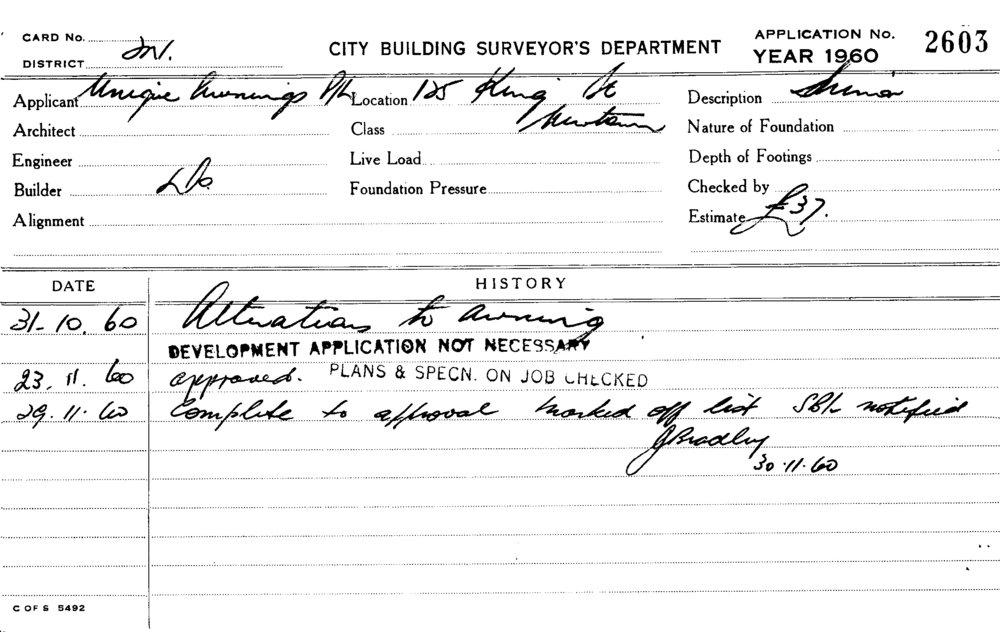 CARD No.
CITY BUILDING SURVEYOR'S DEPARTMENT
APPLICATION No. 2603
YEAR 1960
DISTRICT
Applicant Unique Awnings P/L
Location 125 King St
Newtown
Description
Architect
Class
Nature of Foundation
Engineer
Live Load
Depth of Footings
Builder Do.
Foundation Pressure
Checked by
Alignment
Estimate £37.
DATE
HISTORY
31-10.60 Alterations to awning
DEVELOPMENT APPLICATION NOT NECESSARY
23.11.60 approved. PLANS & SPECN. ON JOB CHECKED
29.11.60 Complete to approval marked off list notified
J Bradley
30.11.60
C OF S 5492